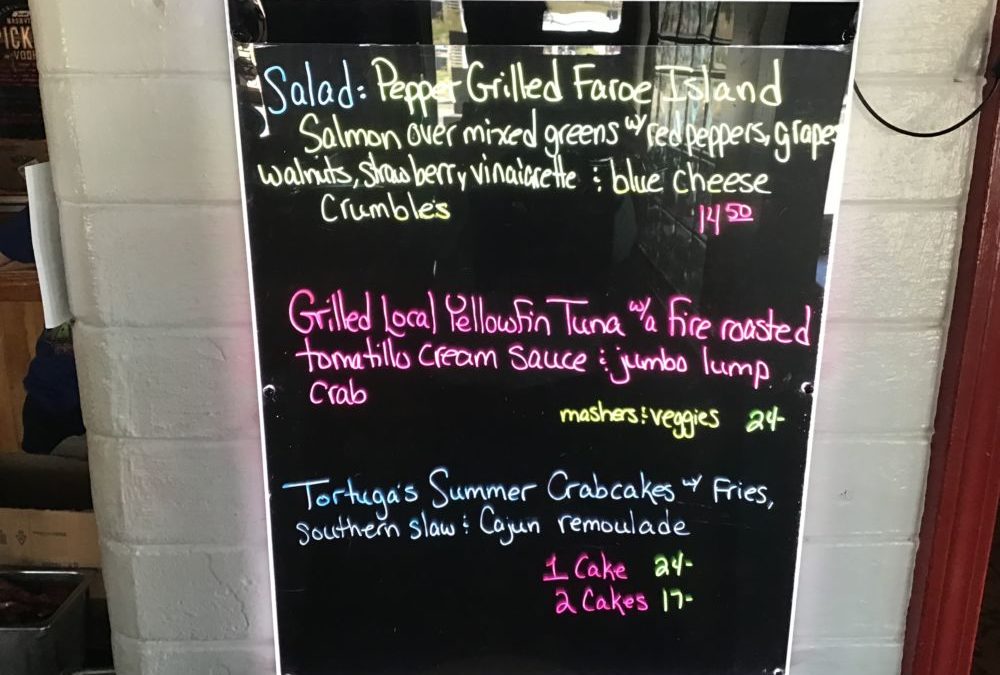 Salad: Pepper Grilled Faroe Island
Salmon over mixed greens w/ red peppers, grapes
walnuts, strawberry vinaigrette & blue cheese
Crumbles
14 50
Grilled Local Yellowfin Tuna w/ a Fire roasted
tomatillo cream sauce & jumbo lump
crab
mashers & veggies 24-
Tortuga's Summer Crabcakes w/ Fries,
southern slaw & Cajun remoulade
1 Cake 24-
2 Cakes 17-